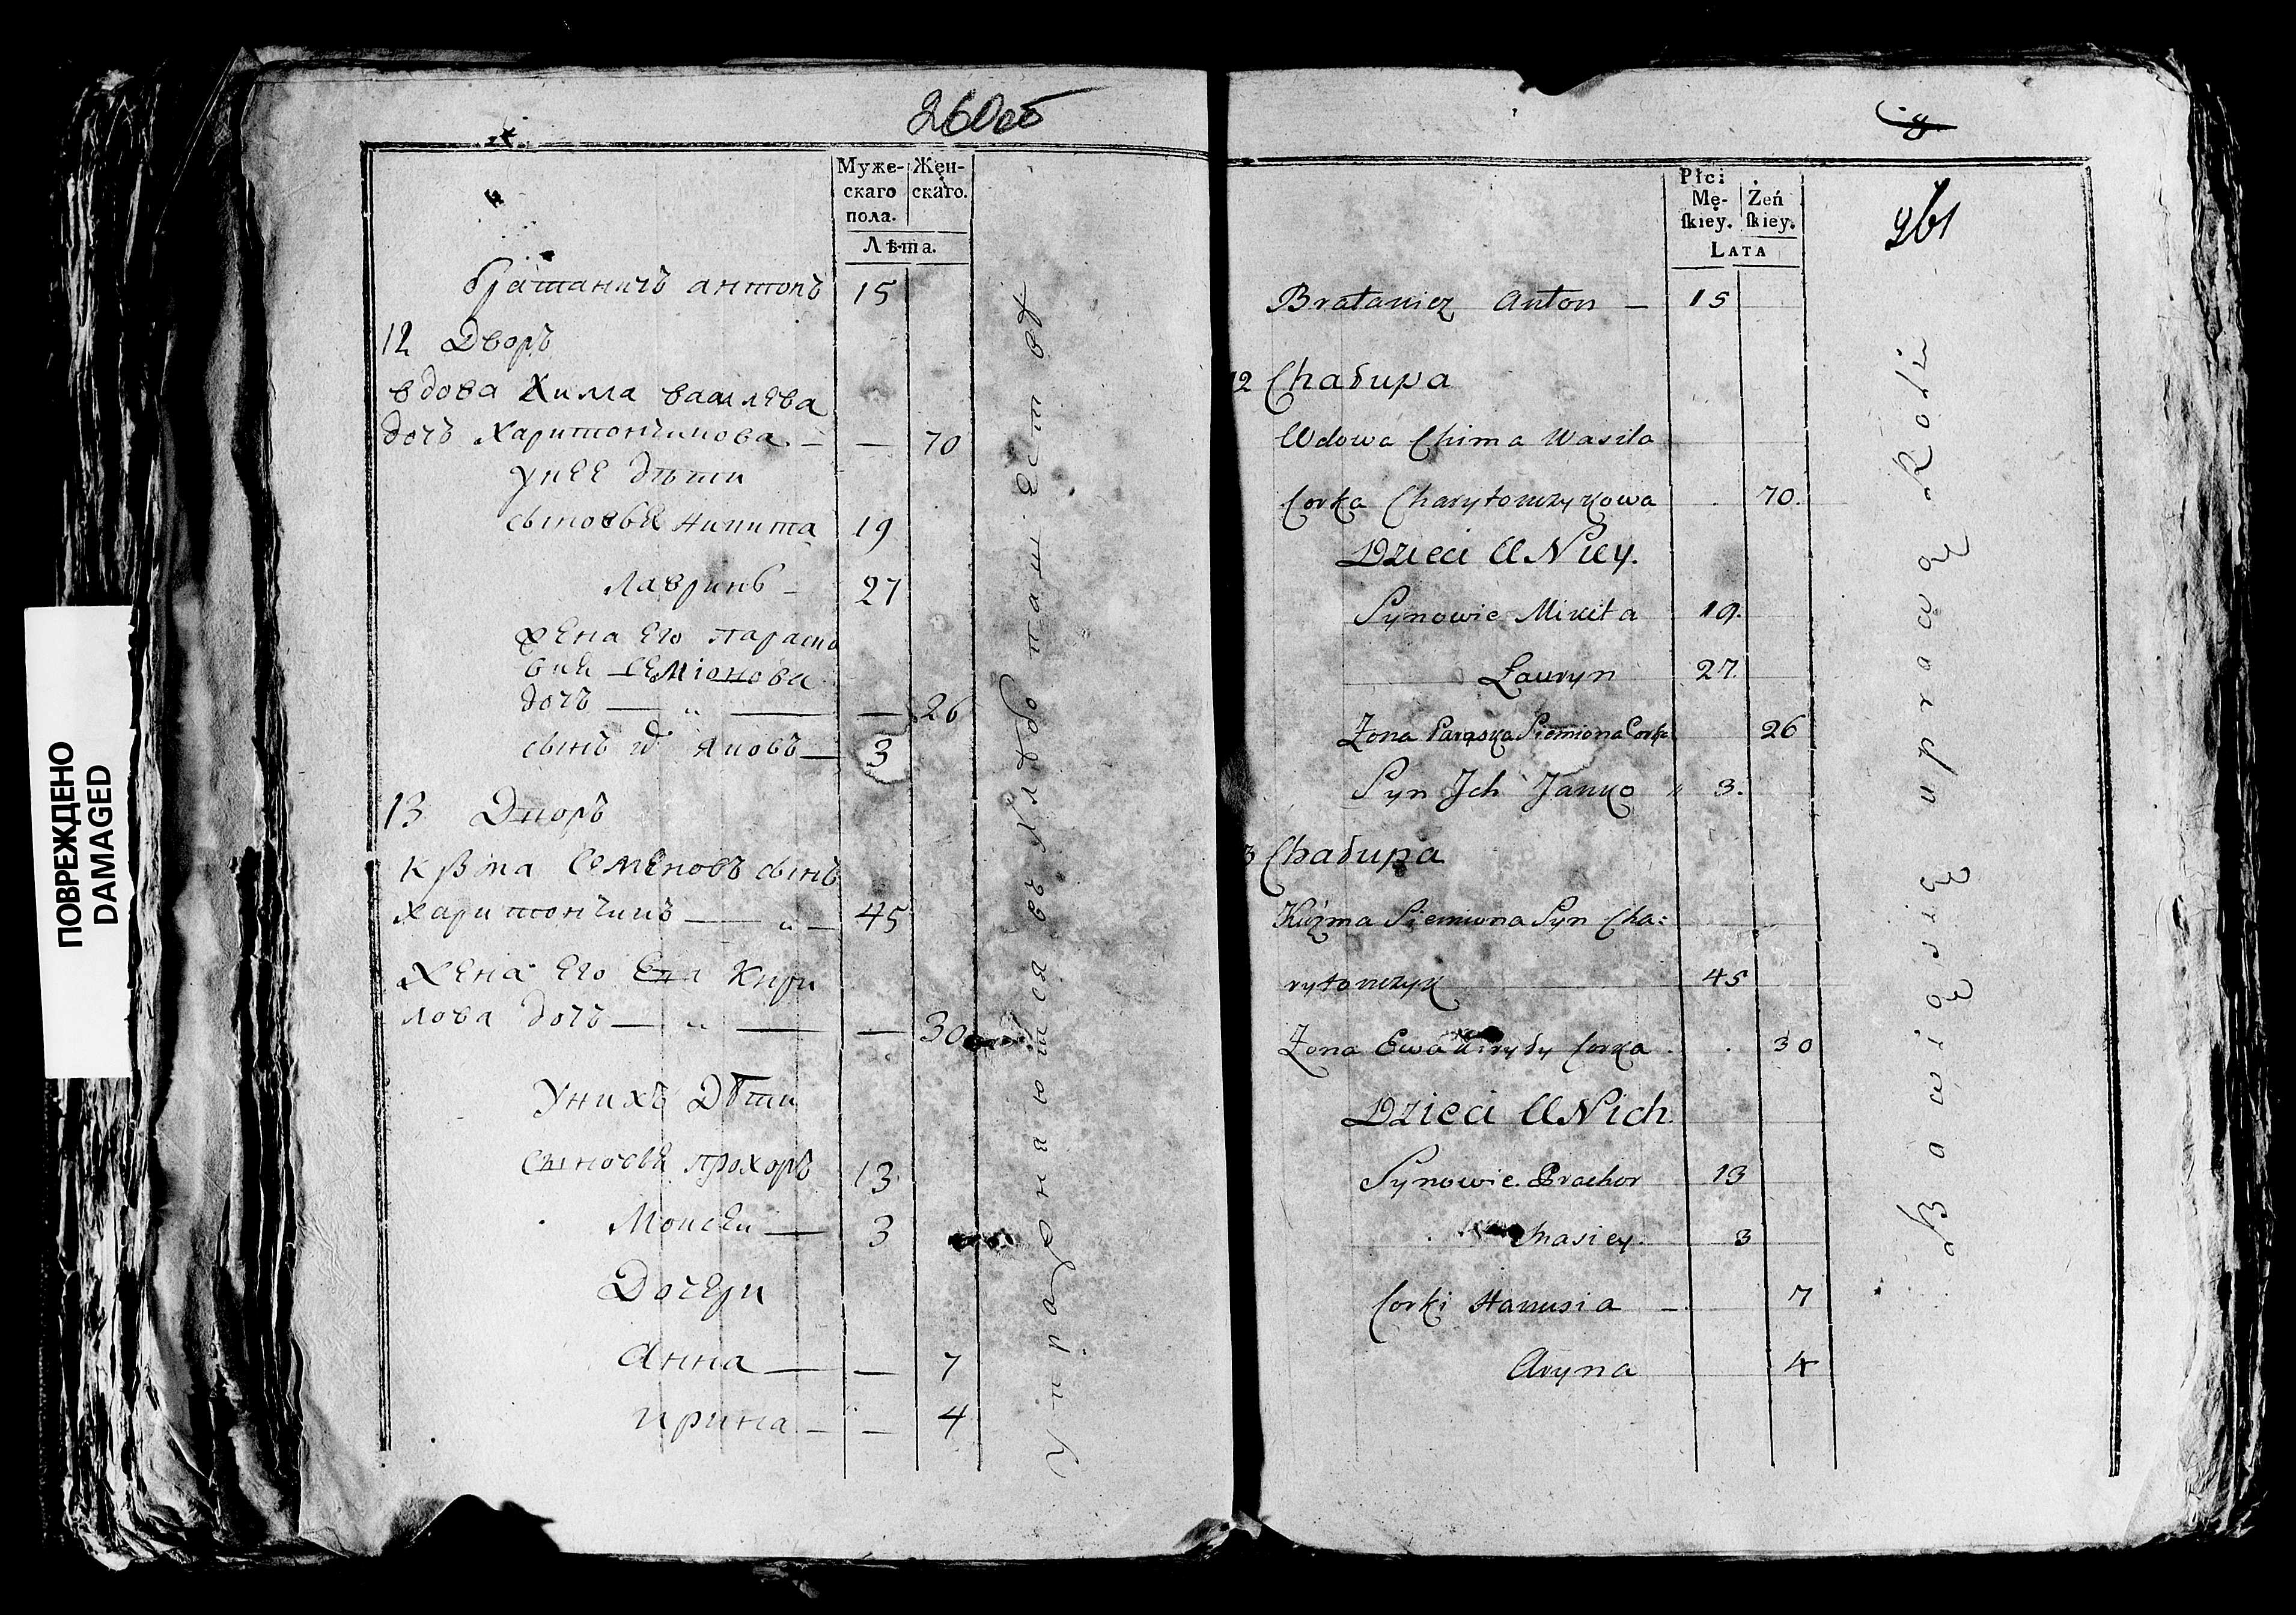 ПОВРЕЖДЕНО
DAMAGED
260об
Муже-
скаго
пола.
Жен-
скаго.
Лѣта.
братаничъ антонъ 15
12 Дворъ
вдова Хима василева
дочь Харитончикова — — 70
у нее дѣти
сыновья никита 19
Лавринъ — 27
жена его параско
вия семіонова
дочь — „ — — 26
сынъ их Яковъ — 3
13 Дворъ
Кузма Семеновъ сынъ
харитончикъ — „ — 45
жена его Ева Кири
лова дочь — „ — — 30
У нихъ Дѣти
сыновья прохоръ 13
Моисей — 3
Дочери
Анна — — 7
ирина — — 4
Упражнаются въ хлѣбопашествѣ
8
261
Płci
Mę-
ſkiey.
Żeń
ſkiey.
LATA
Brataniez Anton — 15
12 Chałupa
Wdowa Chima Wasila
Corka Charytonczykowa . 70.
Dzieci U Niey.
Synowie Mikita 19.
Lauryn 27.
Zona Paraska Siemiona Corka 26
Syn Jch Janko „ 3.
3 Chałupa
Kuźma Siemiona Syn Cha:
rytonczyk 45
Zona Ewa Kiryły Corka . . 30
Dzieci U Nich
Synowie Prachor 13
Masiey. 3
Corki Hanusia — 7
Aryna 4
Bawią się uprawą Roli